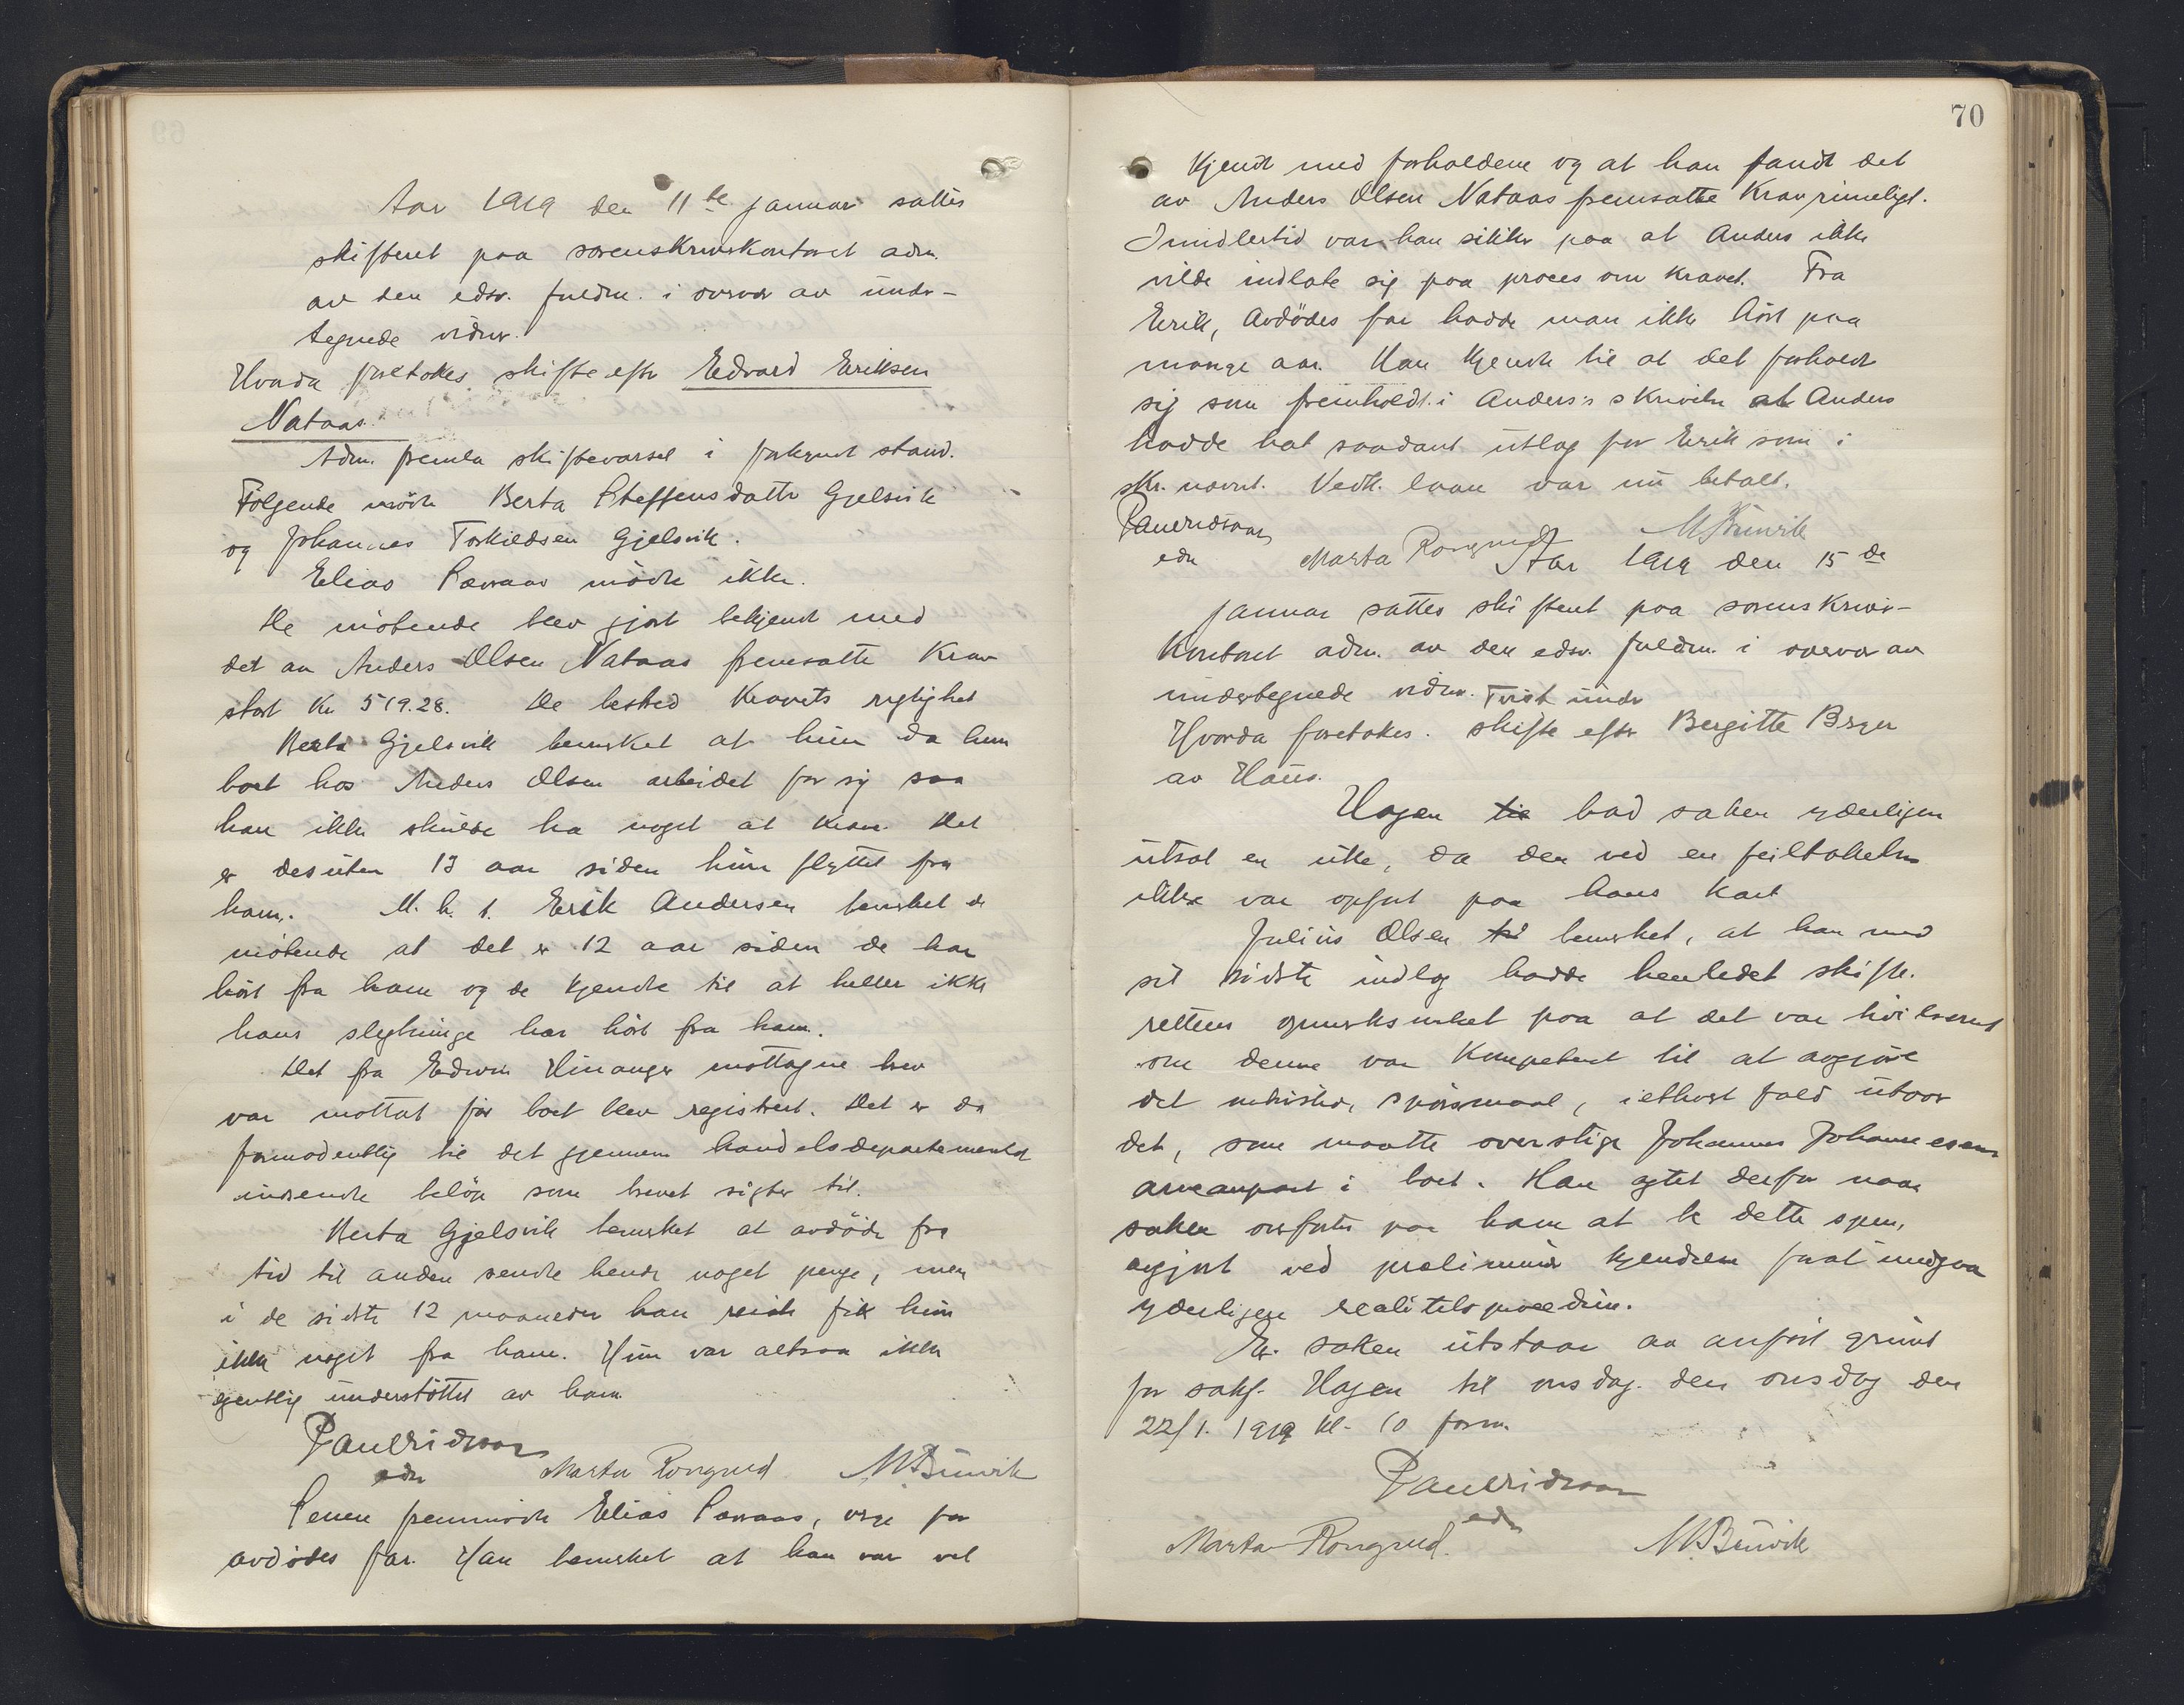 Aar 1919 den 11te januar sattes
skifteret paa sorenskriverkontoret adm.
av den edsv. fuldm. i overvær av under-
tegnede vidner.
Hvorda foretokes skifte efter Edvard Eriksen
Nataas.
Adm. fremla skiftevarsel i forkynt stand.
Følgende mødte Berta Steffensdatter Gjelsvik
og Johannes Torkildsen Gjelsvik.
Elias mødte ikke.
De møtende blev gjort bekjendt med
det av Anders Olsen Nataas fremsatte Krav
stort Kr 519.28. De bestred Kravets rigtighet
Berta Gjelsvik bemerket at hun da hun
boet hos Anders Olsen arbeidet for sig saa
han ikke skulde ha noget at kræve. Det
er desuten 13 aar siden hun flyttet fra
ham. M. h. t. Erik Andersen bemerket de
møtende at det er 12 aar siden de har
hørt fra ham og de kjendte til at heller ikke
hans slegtninge har hørt fra ham.
Det fra Edwin Hinanger mottagne brev
var mottat før boet blev registrert. Det er da
formodentlig til det gjennem handelsdepartementet
indsendte beløp som brevet sigter til.
Berta Gjelsvik bemerket at avdøde fra
tid til anden sendte hende noget penge, men
i de sidste 12 maaneder han reiste fik hun
ikke noget fra ham. Hun var altsaa ikke
egentlig understøttet av ham
edsv
Marta Rongved M Bruvik
Senere fremmødte Elias, verge for
avdødes far. Han bemerket at han var vel
70
kjendt med forholdene og at han fandt det
av Anders Olsen Nataas fremsatte Krav rimeligt.
Imidlertid var han sikker paa at Anders ikke
vilde indlate sig paa proces om kravet. Fra
Erik, Avdødes far hadde man ikke hørt paa
mange aar. Han kjendte til at det forholdt
sig som fremholdt i Anders's skrivelse at Anders
hadde hat saadant utlæg for Erik som i
skr. nævnt. Vedk. laan var nu betalt.
edsv Marta Rongved M Bruvik
Aar 1919 den 15de
januar sattes skifteret paa sorenskriver-
kontoret adm. av den edsv. fuldm. i overvær av
undertegnede vidner. Tvist under
Hvorda foretokes. skifte efter Bergitte
av Haus.
Hagen til bad saken yderligere
utsat en uke, da den ved en feiltakelse
ikke var opført paa hans kart
Julius Olsen til bemerket, at han med
sit sidste indlæg hadde henledet skifte.
rettens opmerksomhet paa at det var tvilsomt
om denne var kompetent til at avgjøre
det omtvistede spørsmaal, iethvert fald utover
det, som maatte overstige Johannes Johannesens
arveanpart i boet. Han agtet derfor naar
saken overførtes paa ham at be dette spm,
avgjort ved preliminær kjendelse forat undgaa
yderligere realitetsprocedure.
Eq. saken utstaar av anført grund
for sakf. Hagen til onsdag. den onsdag den
22/1. 1919 kl. 10 form.
edsv
Marta Rongved. M Bruvik